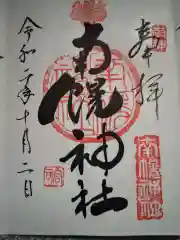 奉拝
南幌神社
令和二年十月二日
南幌神社